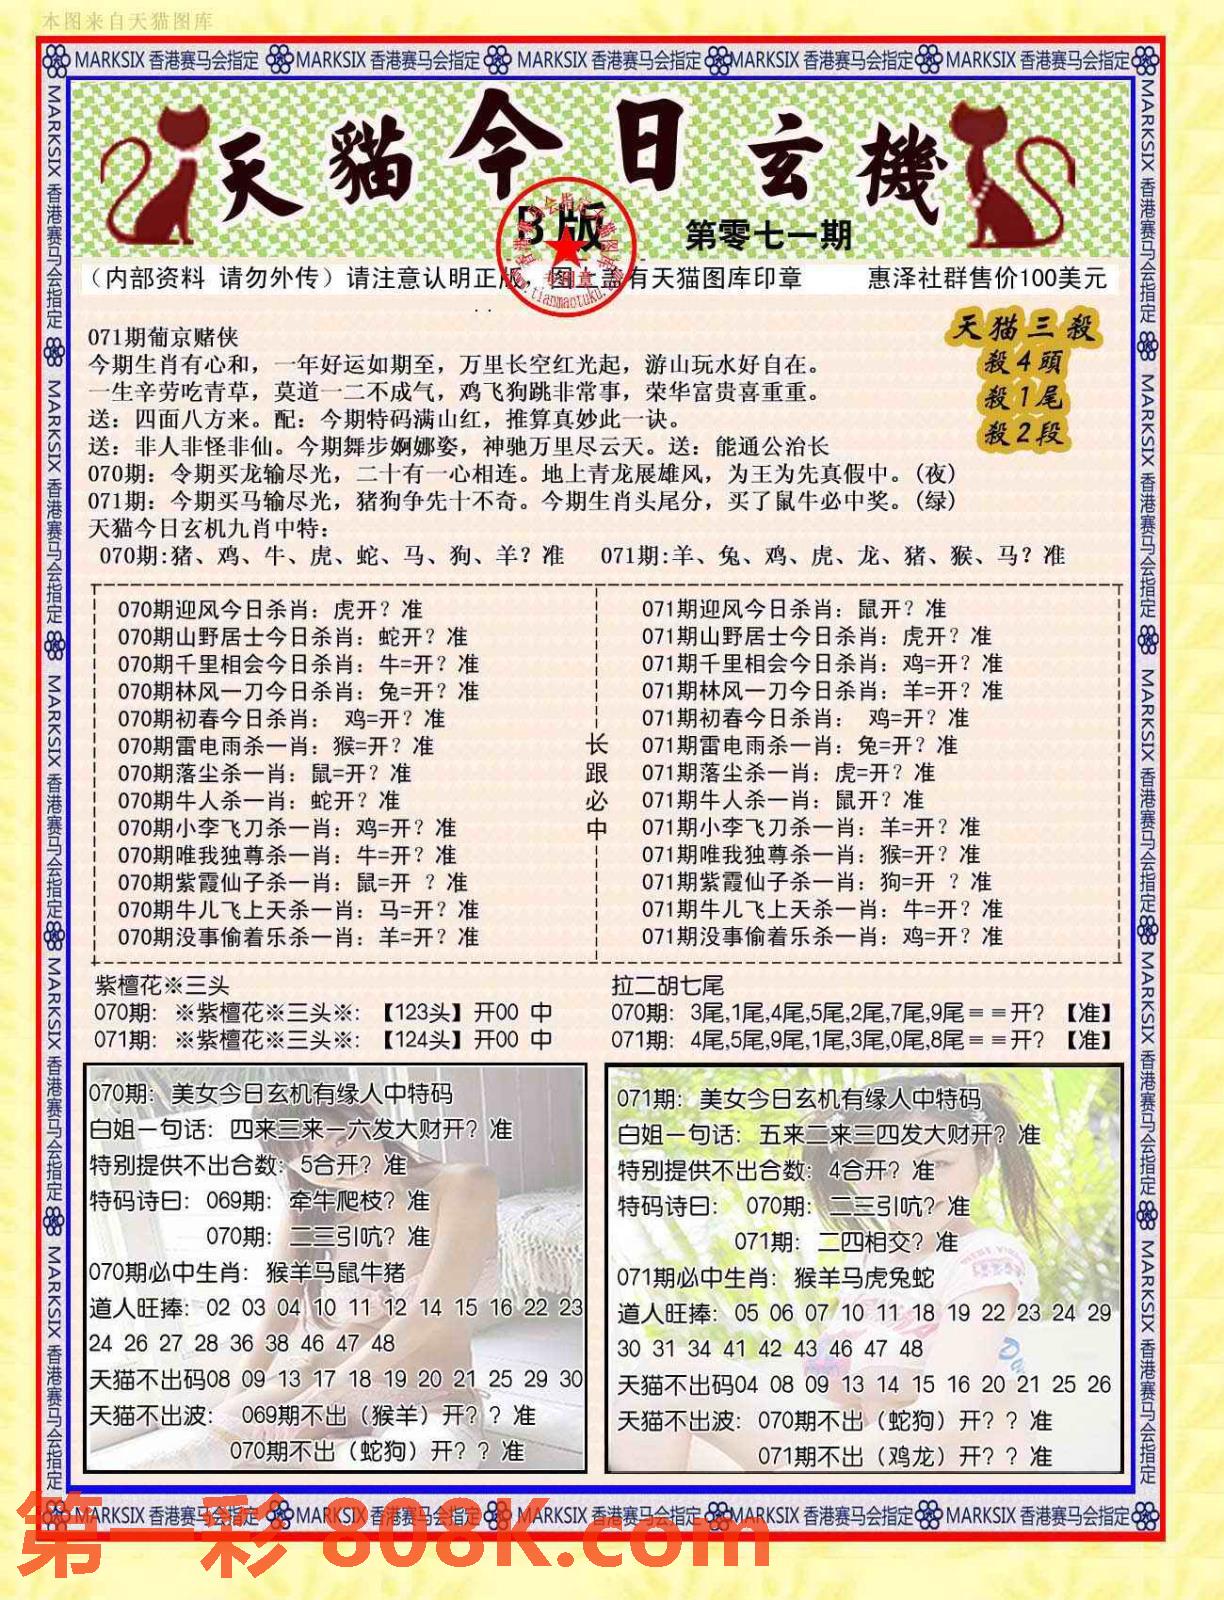 本图来自天猫图库
MARKSIX 香港赛马会指定 MARKSIX 香港赛马会指定 MARKSIX 香港赛马会指定 MARKSIX 香港赛马会指定 MARKSIX 香港赛马会指定
天貓今日玄機
B版
第零七一期
（内部资料 请勿外传）请注意认明正版 图 有天猫图库印章 惠泽社群售价100美元
天猫三殺
殺4頭
殺1尾
殺2段
071期葡京赌侠
今期生肖有心和，一年好运如期至，万里长空红光起，游山玩水好自在。
一生辛劳吃青草，莫道一二不成气，鸡飞狗跳非常事，荣华富贵喜重重。
送：四面八方来。配：今期特码满山红，推算真妙此一诀。
送：非人非怪非仙。今期舞步婀娜姿，神驰万里尽云天。送：能通公治长
070期：令期买龙输尽光，二十有一心相连。地上青龙展雄风，为王为先真假中。(夜)
071期：今期买马输尽光，猪狗争先十不奇。今期生肖头尾分，买了鼠牛必中奖。(绿)
天猫今日玄机九肖中特：
070期:猪、鸡、牛、虎、蛇、马、狗、羊？准 071期:羊、兔、鸡、虎、龙、猪、猴、马？准
070期迎风今日杀肖：虎开？准
070期山野居士今日杀肖：蛇开？准
070期千里相会今日杀肖：牛=开？准
070期林风一刀今日杀肖：兔=开？准
070期初春今日杀肖： 鸡=开？准
070期雷电雨杀一肖：猴=开？准
070期落尘杀一肖：鼠=开？准
070期牛人杀一肖：蛇开？准
070期小李飞刀杀一肖：鸡=开？准
070期唯我独尊杀一肖：牛=开？准
070期紫霞仙子杀一肖：鼠=开 ？准
070期牛儿飞上天杀一肖：马=开？准
070期没事偷着乐杀一肖：羊=开？准
长跟必中
071期迎风今日杀肖：鼠开？准
071期山野居士今日杀肖：虎开？准
071期千里相会今日杀肖：鸡=开？准
071期林风一刀今日杀肖：羊=开？准
071期初春今日杀肖： 鸡=开？准
071期雷电雨杀一肖：兔=开？准
071期落尘杀一肖：虎=开？准
071期牛人杀一肖：鼠开？准
071期小李飞刀杀一肖：羊=开？准
071期唯我独尊杀一肖：猴=开？准
071期紫霞仙子杀一肖：狗=开 ？准
071期牛儿飞上天杀一肖：牛=开？准
071期没事偷着乐杀一肖：鸡=开？准
紫檀花※三头
070期：※紫檀花※三头※：【123头】开00 中
071期：※紫檀花※三头※：【124头】开00 中
拉二胡七尾
070期：3尾,1尾,4尾,5尾,2尾,7尾,9尾＝＝开？【准】
071期：4尾,5尾,9尾,1尾,3尾,0尾,8尾＝＝开？【准】
070期：美女今日玄机有缘人中特码
白姐一句话：四来三来一六发大财开？准
特别提供不出合数：5合开？准
特码诗曰：069期：牵牛爬枝？准
070期：二三引吭？准
070期必中生肖：猴羊马鼠牛猪
道人旺捧：02 03 04 10 11 12 14 15 16 22 23
24 26 27 28 36 38 46 47 48
天猫不出码08 09 13 17 18 19 20 21 25 29 30
天猫不出波： 069期不出（猴羊）开？？准
070期不出（蛇狗）开？？准
071期：美女今日玄机有缘人中特码
白姐一句话：五来二来三四发大财开？准
特别提供不出合数：4合开？准
特码诗曰： 070期：二三引吭？准
071期：二四相交？准
071期必中生肖：猴羊马虎兔蛇
道人旺捧：05 06 07 10 11 18 19 22 23 24 29
30 31 34 41 42 43 46 47 48
天猫不出码04 08 09 13 14 15 16 20 21 25 26
天猫不出波：070期不出（蛇狗）开？？准
071期不出（鸡龙）开？？准
MARKSIX 香港赛马会指定 MARKSIX 香港赛马会指定 MARKSIX 香港赛马会指定 MARKSIX 香港赛马会指定 MARKSIX 香港赛马会指定
第一彩 808K.com